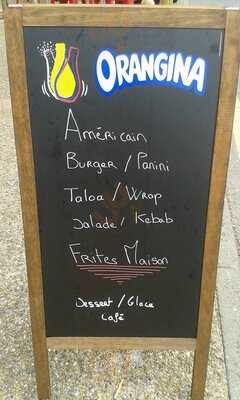 ORANGINA
Américain
Burger / Panini
Taloa / Wrap
Salade / Kebab
Frites Maison
Dessert / Glace
Café